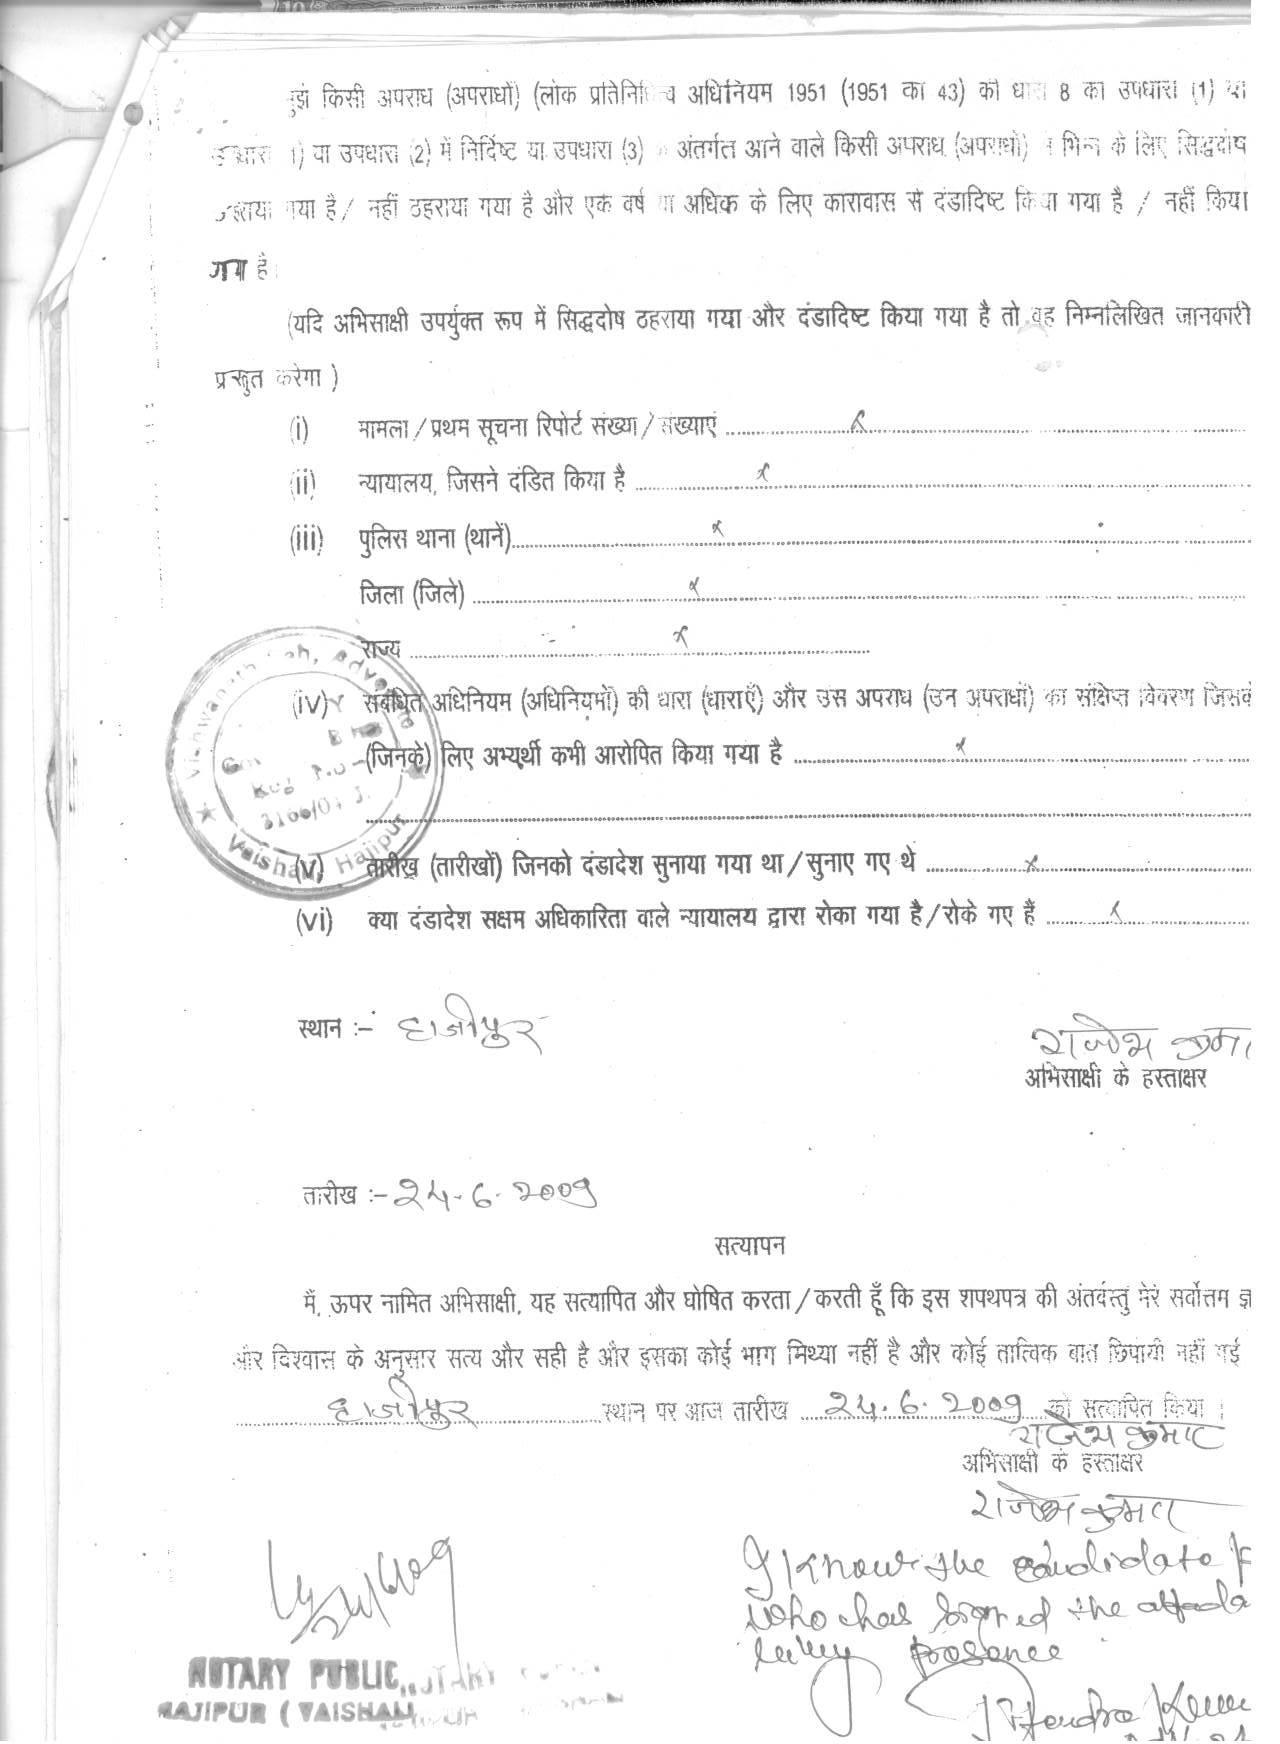 किसी अपराध (अपराधों) (लोक प्रतिनिधित्व अधिनियम 1951 (1951 का 43) की धारा 8 का उपधारा (1) या
1) या उपधारा (2) में निर्दिष्ट या उपधारा (3) अंतर्गत आने वाले किसी अपराध (अपराधों) भिन्न के लिए सिद्धदोष
ठहराया गया है / नहीं ठहराया गया है और एक वर्ष या अधिक के लिए कारावास से दंडादिष्ट किया गया है / नहीं किया
गया है
(यदि अभिसाक्षी उपर्युक्त रूप में सिद्धदोष ठहराया गया और दंडादिष्ट किया गया है तो वह निम्नलिखित जानकारी
प्रस्तुत करेगा )
(i) मामला / प्रथम सूचना रिपोर्ट संख्या / संख्याएं ........ x ........
(ii) न्यायालय, जिसने दंडित किया है ........ x ........
(iii) पुलिस थाना (थानें) ........ x ........
जिला (जिले) ........ x ........
राज्य ........ x ........
(iv) संबंधित अधिनियम (अधिनियमों) की धारा (धाराएँ) और उस अपराध (उन अपराधों) का संक्षिप्त विवरण जिसके
(जिनके) लिए अभ्यर्थी कभी आरोपित किया गया है ........ x ........
(v) तारीख (तारीखों) जिनको दंडादेश सुनाया गया था / सुनाए गए थे ........ x ........
(vi) क्या दंडादेश सक्षम अधिकारिता वाले न्यायालय द्वारा रोका गया है / रोके गए हैं ........ x ........
Vishwanath Sah, Advocate
Reg No-
3166/0
Vaishali Hajipur
स्थान :- हाजीपुर
राजेश कुमा
अभिसाक्षी के हस्ताक्षर
तारीख :- 24-6-2009
सत्यापन
मैं, ऊपर नामित अभिसाक्षी, यह सत्यापित और घोषित करता / करती हूँ कि इस शपथपत्र की अंतर्वस्तु मेरे सर्वोत्तम ज्ञ
और विश्वास के अनुसार सत्य और सही है और इसका कोई भाग मिथ्या नहीं है और कोई तात्विक बात छिपायी नहीं गई
हाजीपुर स्थान पर आज तारीख 24.6.2009 को सत्यापित किया ।
राजेश कुमार
अभिसाक्षी के हस्ताक्षर
राजेश कुमार
I know the candidate
who has signed the affada
in my presence
Jitendra Kumar
NOTARY PUBLIC
HAJIPUR (VAISHALI